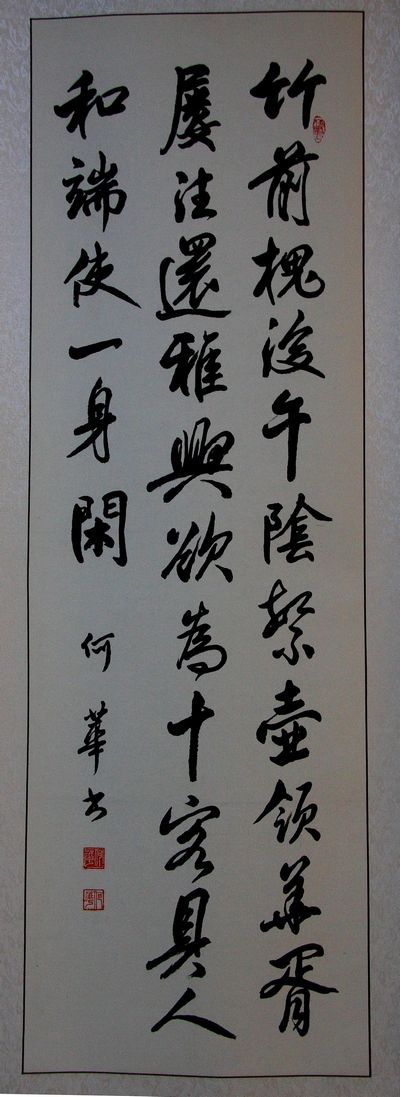 竹前槐後午陰繁壺領華胥
屢往還雅興欲為十客具人
和端使一身閑
何華书